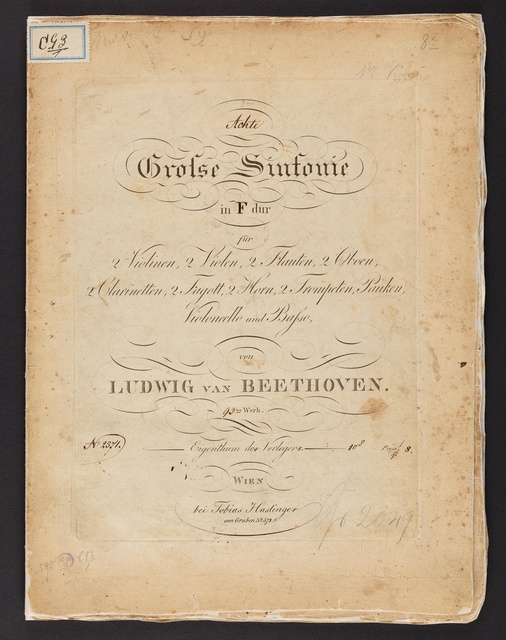 C93
8
Achte
Grosse Sinfonie
in F dur
für
2 Violinen, 2 Violen, 2 Flauten, 2 Oboen,
2 Clarinetten, 2 Fagott, 2 Horn, 2 Trompeten, Pauken,
Violoncello und Basso,
von
LUDWIG VAN BEETHOVEN.
93tes Werk.
No 2571. Eigenthum des Verlegers. 8.
WIEN
bei Tobias Haslinger
am Graben No 572.